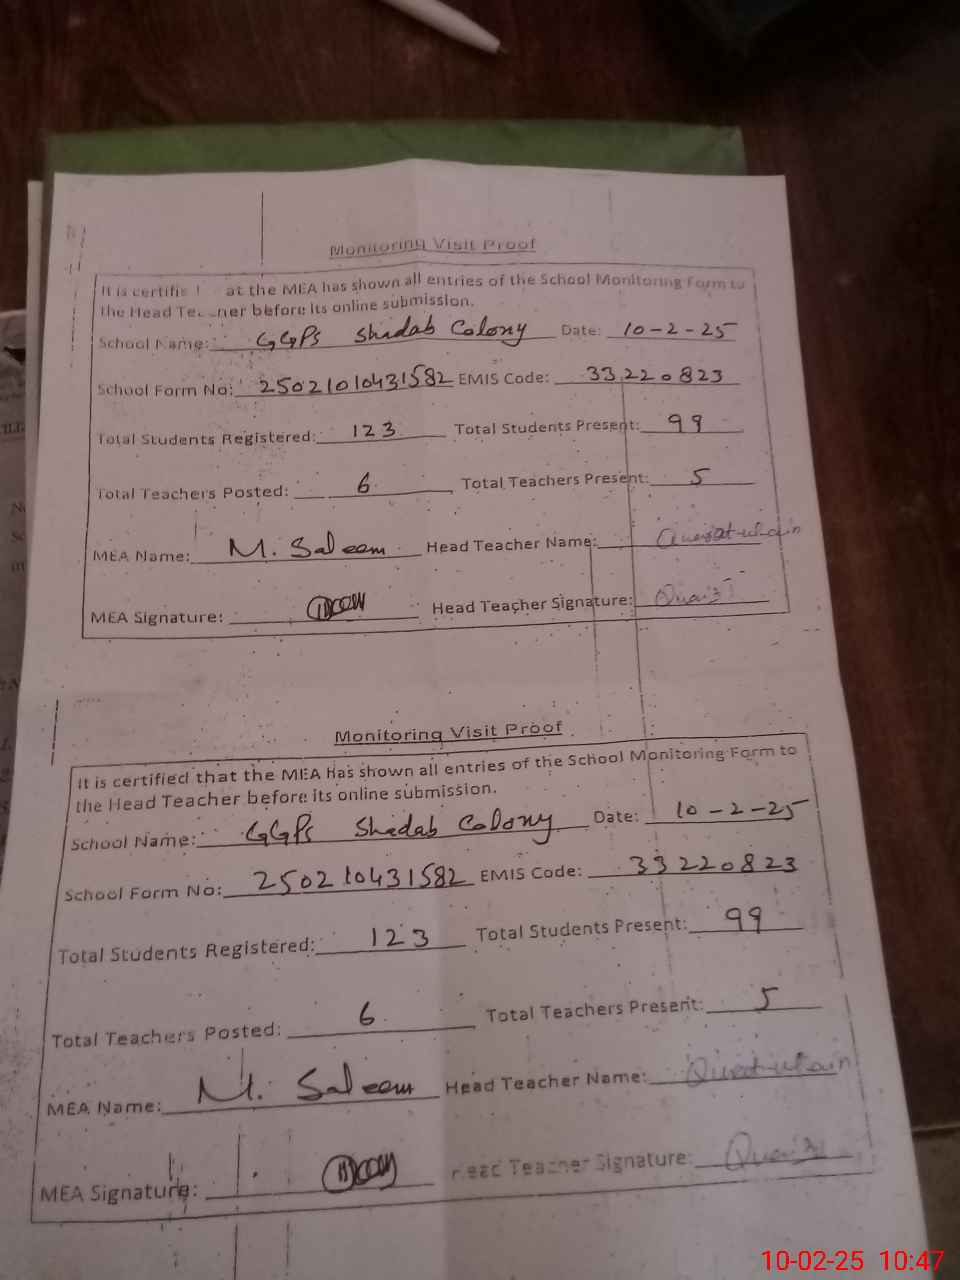 Monitoring Visit Proof
It is certifie at the MEA has shown all entries of the School Monitoring Form to
the Head Teacher before its online submission.
School Name: GGPS Shadab Colony Date: 10-2-25
School Form No: 25021010431582 EMIS Code: 33220823
Total Students Registered: 123 Total Students Present: 99
Total Teachers Posted: 6 Total Teachers Present: 5
MEA Name: M. Saleem Head Teacher Name:
MEA Signature: Head Teacher Signature:
Monitoring Visit Proof
It is certified that the MEA Has shown all entries of the School Monitoring Form to
the Head Teacher before its online submission.
School Name: GGPS Shadab Colony Date: 10-2-25
School Form No: 250210431582 EMIS Code: 33220823
Total Students Registered: 123 Total Students Present: 99
Total Teachers Posted: 6 Total Teachers Present: 5
MEA Name: M. Saleem Head Teacher Name:
MEA Signature: Head Teacher Signature:
10-02-25 10:47